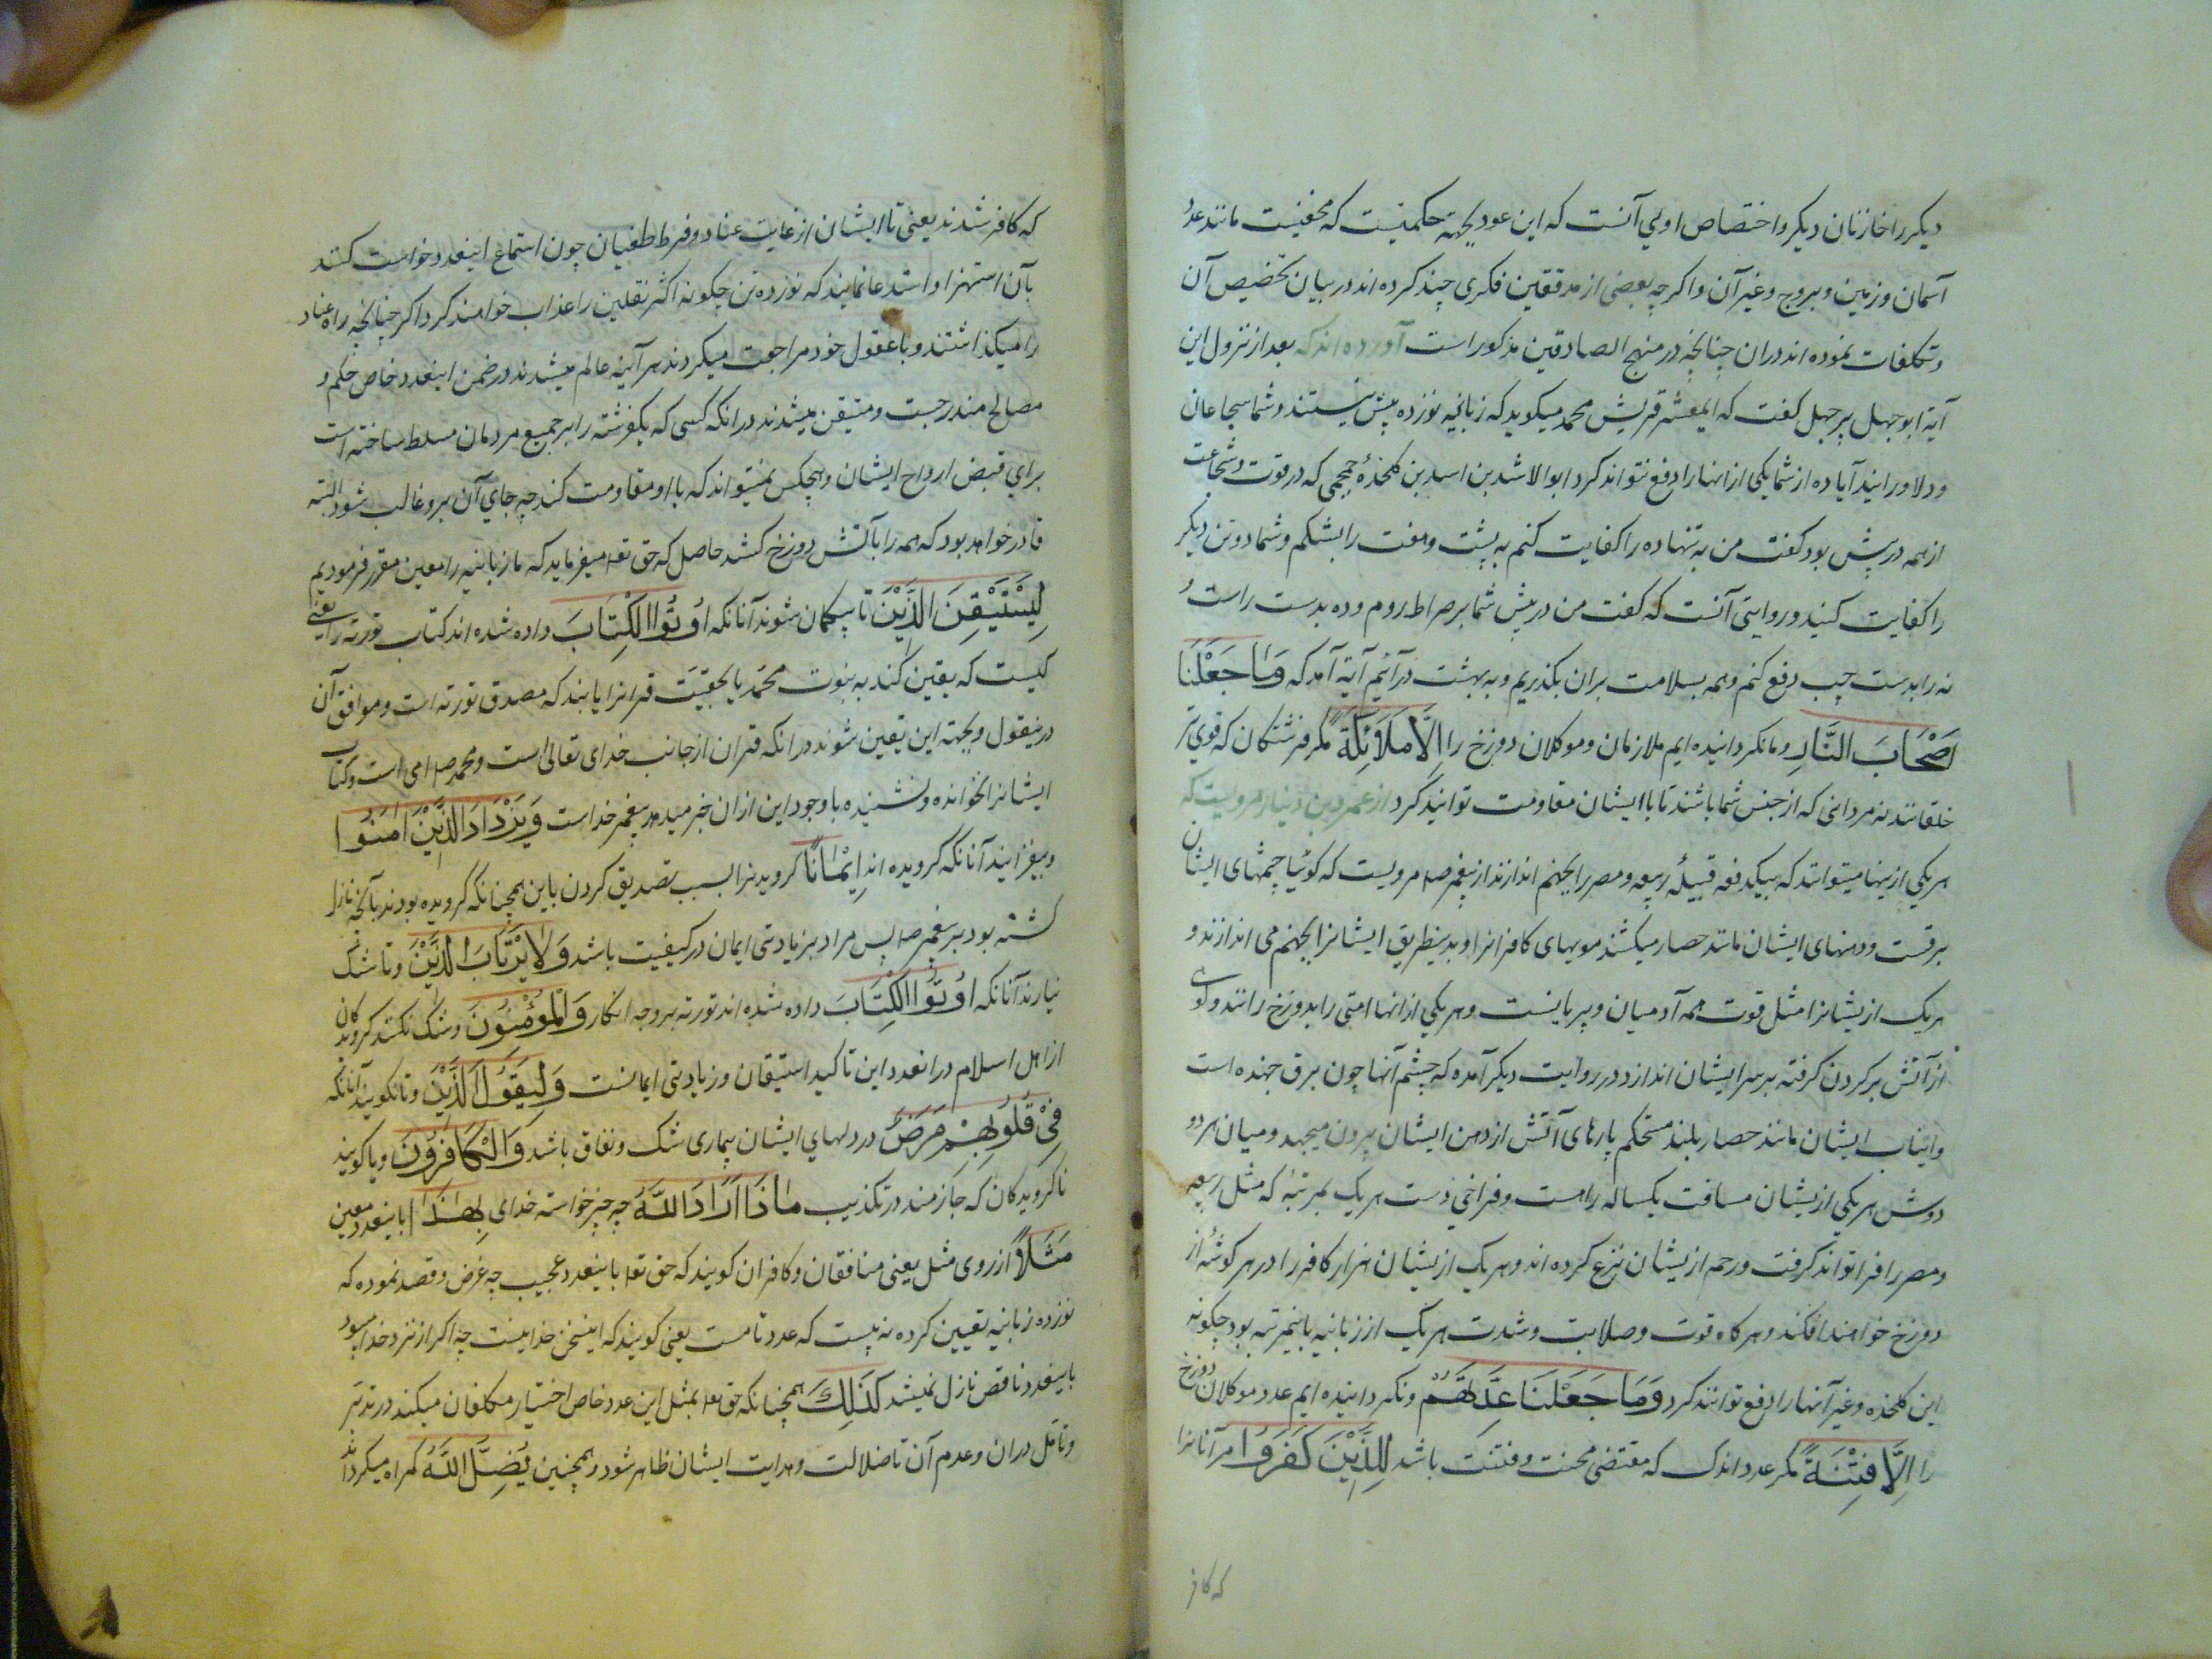 دیکر را خازنان دیکر و اختصاص اولی آنست که این عود بجهة حکمتیست که مخفیست مانند عدد
آسمان و زمین و بروج و غیر آن و اکرچه بعضی از مدققین فکری چند کرده اند در بیان تخصیص آن
و تکلفات نموده اند دران چنانچه در منهج الصادقین مذکور است آورده اند که بعد از نزول این
آیة ابوجهل پرجهل کفت که ایمعشر قریش محمد میکوید که زبانیه نوزده پیش نیستند و شما شجاعان
و دلاورانید آیا ده از شما یکی از انها را دفع نتواند کرد ابوالاشد بن اسد بن کلخدۀ جمحی که در قوت و شجاعت
از همه در پیش بود کفت من به تنها ده را کفایت کنم به پشت و هفت را بشکم و شما دو تن دیکر
را کفایت کنید و روایتی آنست که کفت من در پیش شما بر صراط روم و ده بدست راست و
نه را بدست چپ دفع کنم و همه بسلامت بران بکذریم و به بهشت درآئیم آیة آمد که وَمَا جَعَلْنَا
اَصْحَابَ النَّارِ و ما نکردانیده ایم ملازمان و موکلان دوزخ را اِلَّا مَلَائِكَةً مکر فرشتکان که قوی تر
خلقانند نه مردانی که از جنس شما باشند تا با ایشان مقاومت توانید کرد از عمرو بن دینار مرویست که
هریکی ازینها میتوانند که بیکدفعه قبیلۀ ربیعه و مضر را بجهنم اندازند از پیغمبر صم مرویست که کوئیا چشمهای ایشان
برقست و دهنهای ایشان مانند حصار میکشند مویهای کافرانرا و بدینطریق ایشانرا بجهنم می اندازند و
هریک ازیشانرا مثل قوت همه آدمیان و پریانست و هریکی از انها امتی را بدوزخ رانند و کوهی
از آتش بر کردن کرفته بر سر ایشان اندازد و در روایت دیکر آمده که چشم آنها چون برق جهنده است
و انیاب ایشان مانند حصار بلند مستحکم پارهای آتش از دهن ایشان بیرون میجهد و میان هر دو
دوش هریکی ازیشان مسافت یکساله راهست و فراخی دست هریک بمرتبۀ که مثل ربیعه
و مضر را فرا تواند کرفت و رحم ازیشان نزع کرده اند و هریک ازیشان هزار کافر را در هر کوشۀ از
دوزخ خواهند افکند و هرکاه قوت و صلابت و شدت هریک از زبانیه باینمرتبه بود چکونه
این کلخده و غیر آنها را دفع توانند کرد وَمَا جَعَلْنَا عِدَّتَهُمْ و نکردانیده ایم عدد موکلان دوزخ
را اِلَّا فِتْنَةً مکر عدد اندک که مقتضی محنت و فتنت باشد لِلَّذِيْنَ كَفَرُوا مر آنانرا
که کافر
که کافر شدند یعنی تا ایشان از غایت عناد و فرط طغیان چون استماع اینعدد خواست کنند
بآن استهزا و استبعاد نمایند که نوزده تن چکونه اکثر ثقلین را عذاب خواهند کرد اکر چنانچه راه عناد
را میکذاشتند و با عقول خود مراجعت میکردند هر آینه عالم میشدند در ضمن اینعدد خاص حکم و
مصالح مندرجست و متیقن میشدند در انکه کسی که یکفرشته را بر جمیع مردمان مسلط ساخته است
برای قبض ارواح ایشان و هیچکس نمیتواند که با او مقاومت کند چه جای آن برو غالب شود البته
قادر خواهد بود که همه را بآتش دوزخ کشد حاصل که حق تعه میفرماید که ما زبانیه را معین مقرر فرمودیم
لِيَسْتَيْقِنَ الَّذِيْنَ تا بیکمان شوند آنانکه اُوْتُوا الْكِتَابَ داده شده اند کتاب توریة را یعنی
کیست که یقین کند به نبوت محمد یا بحقیت قرانرا یابند که مصدق توریة است و موافق آن
درینقول و بجهة این یقین شوند در انکه قران از جانب خدای تعالی است و محمد صم امی است و کتاب
ایشانرا نخوانده و نشنیده با وجود این ازان خبر میدهد پیغمبر خداست وَيَزْدَادَ الَّذِيْنَ اٰمَنُوا
و بیفزایند آنانکه کرویده اند اِيْمَانًا کرویدنرا بسبب تصدیق کردن باین همچنانکه کرویده بودند بآنچه نازل
کشته بود بر پیغمبر صم پس مراد بزیادتی ایمان در کیفیت باشد وَلَا يَرْتَابَ الَّذِيْنَ و تا شک
نیارند آنانکه اُوْتُوا الْكِتَابَ داده شده اند توریة بر وجه انکار وَالْمُؤْمِنُوْنَ و شک نکنند کرویدکان
از اهل اسلام در انعدد این تاکید استیقان و زیادتی ایمانست وَلِيَقُوْلَ الَّذِيْنَ و تا نکویند آنانکه
فِيْ قُلُوْبِهِمْ مَرَضٌ در دلهای ایشان بیماری شک و نفاق باشد وَالْكَافِرُوْنَ و یا کویند
ناکرویدکان که جازمند در تکذیب مٰاذَا اَرَادَ اللّٰهُ چه چیز خواسته خدای بِهٰذَا باینعدد معین
مَثَلًا از روی مثل یعنی منافقان و کافران کویند که حق تعه باینعدد عجیب چه غرض و قصد نموده که
نوزده زبانیه تعیین کرده نه بیست که عدد تامست یعنی کویند که اینسخن خدا نیست چه اکر از نزد خدا میبود
باینعدد ناقص نازل نمیشد كَذٰلِكَ همچنانکه حق تعه بمثل این عدد خاص اختیار مکلفان میکند در تدبر
و تامل دران و عدم آن تا ضلالت و هدایت ایشان ظاهر شود و همچنین يُضِلُّ اللّٰهُ کمراه میکرداند